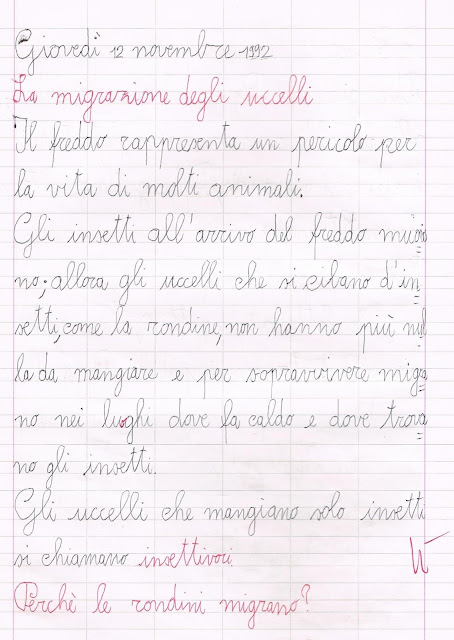 Giovedì 12 novembre 1992
La migrazione degli uccelli
Il freddo rappresenta un pericolo per
la vita di molti animali.
Gli insetti all'arrivo del freddo muoio=
no; allora gli uccelli che si cibano d'in=
setti, come la rondine, non hanno più nul=
la da mangiare e per sopravvivere migra=
no nei luoghi dove fa caldo e dove trova=
no gli insetti.
Gli uccelli che mangiano solo insetti
si chiamano insettivori.
Perchè le rondini migrano?